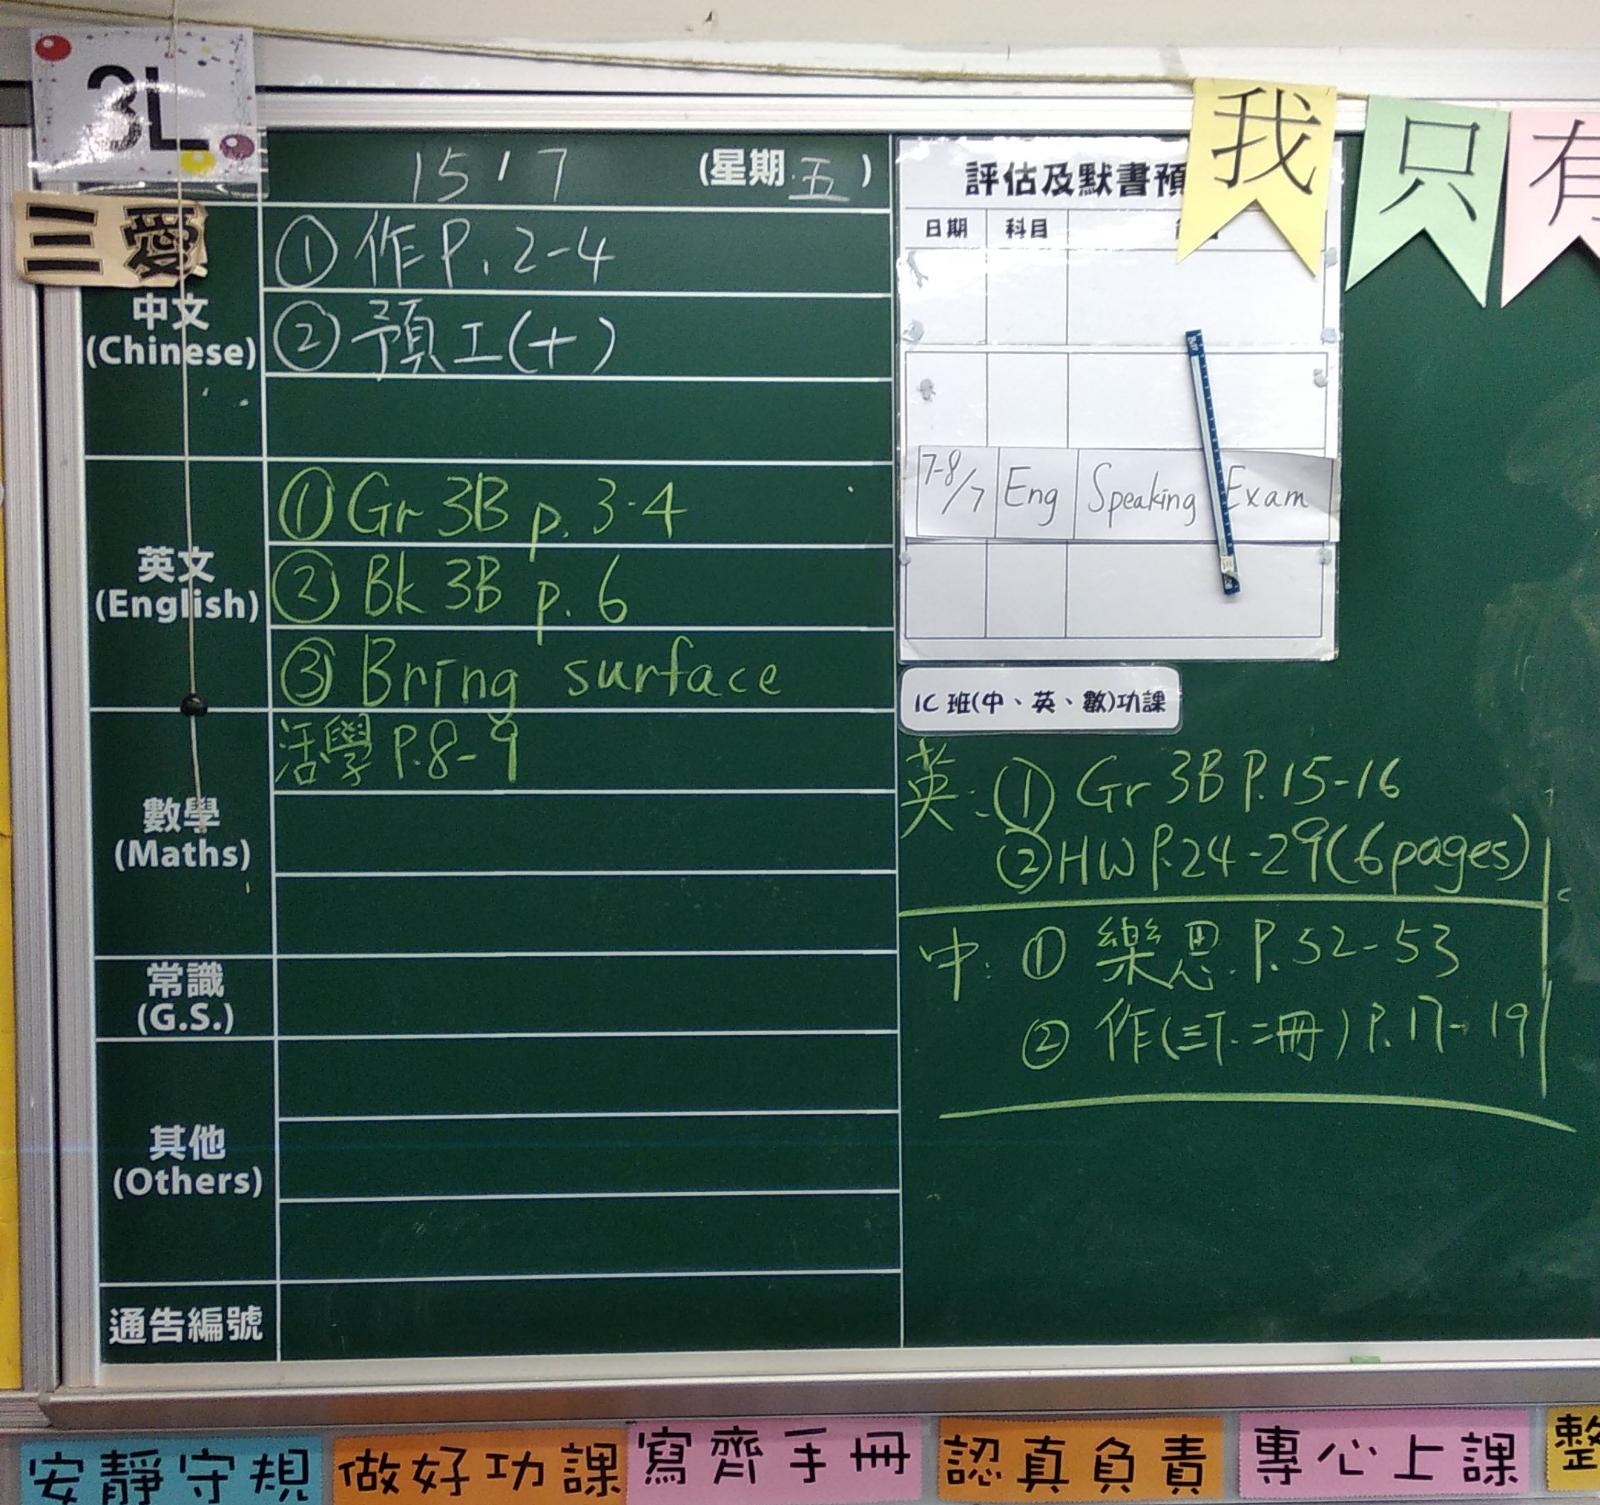 3L
三 愛
15 / 7 (星期 五 )
中文
(Chinese)
① 作 P. 2-4
② 預工(十)
英文
(English)
① Gr 3B p. 3-4
② Bk 3B p. 6
③ Bring surface
數學
(Maths)
活學 P.8-9
常識
(G.S.)
其他
(Others)
通告編號
評估及默書預
日期 科目
7-8/7 Eng Speaking Exam
我 只 有
1C 班(中、英、數)功課
英: ① Gr 3B P.15-16
② HW P.24-29(6 pages)
中: ① 樂思 P.52-53
② 作(三下.二冊) P.17-19
安靜守規
做好功課
寫齊手冊
認真負責
專心上課
整